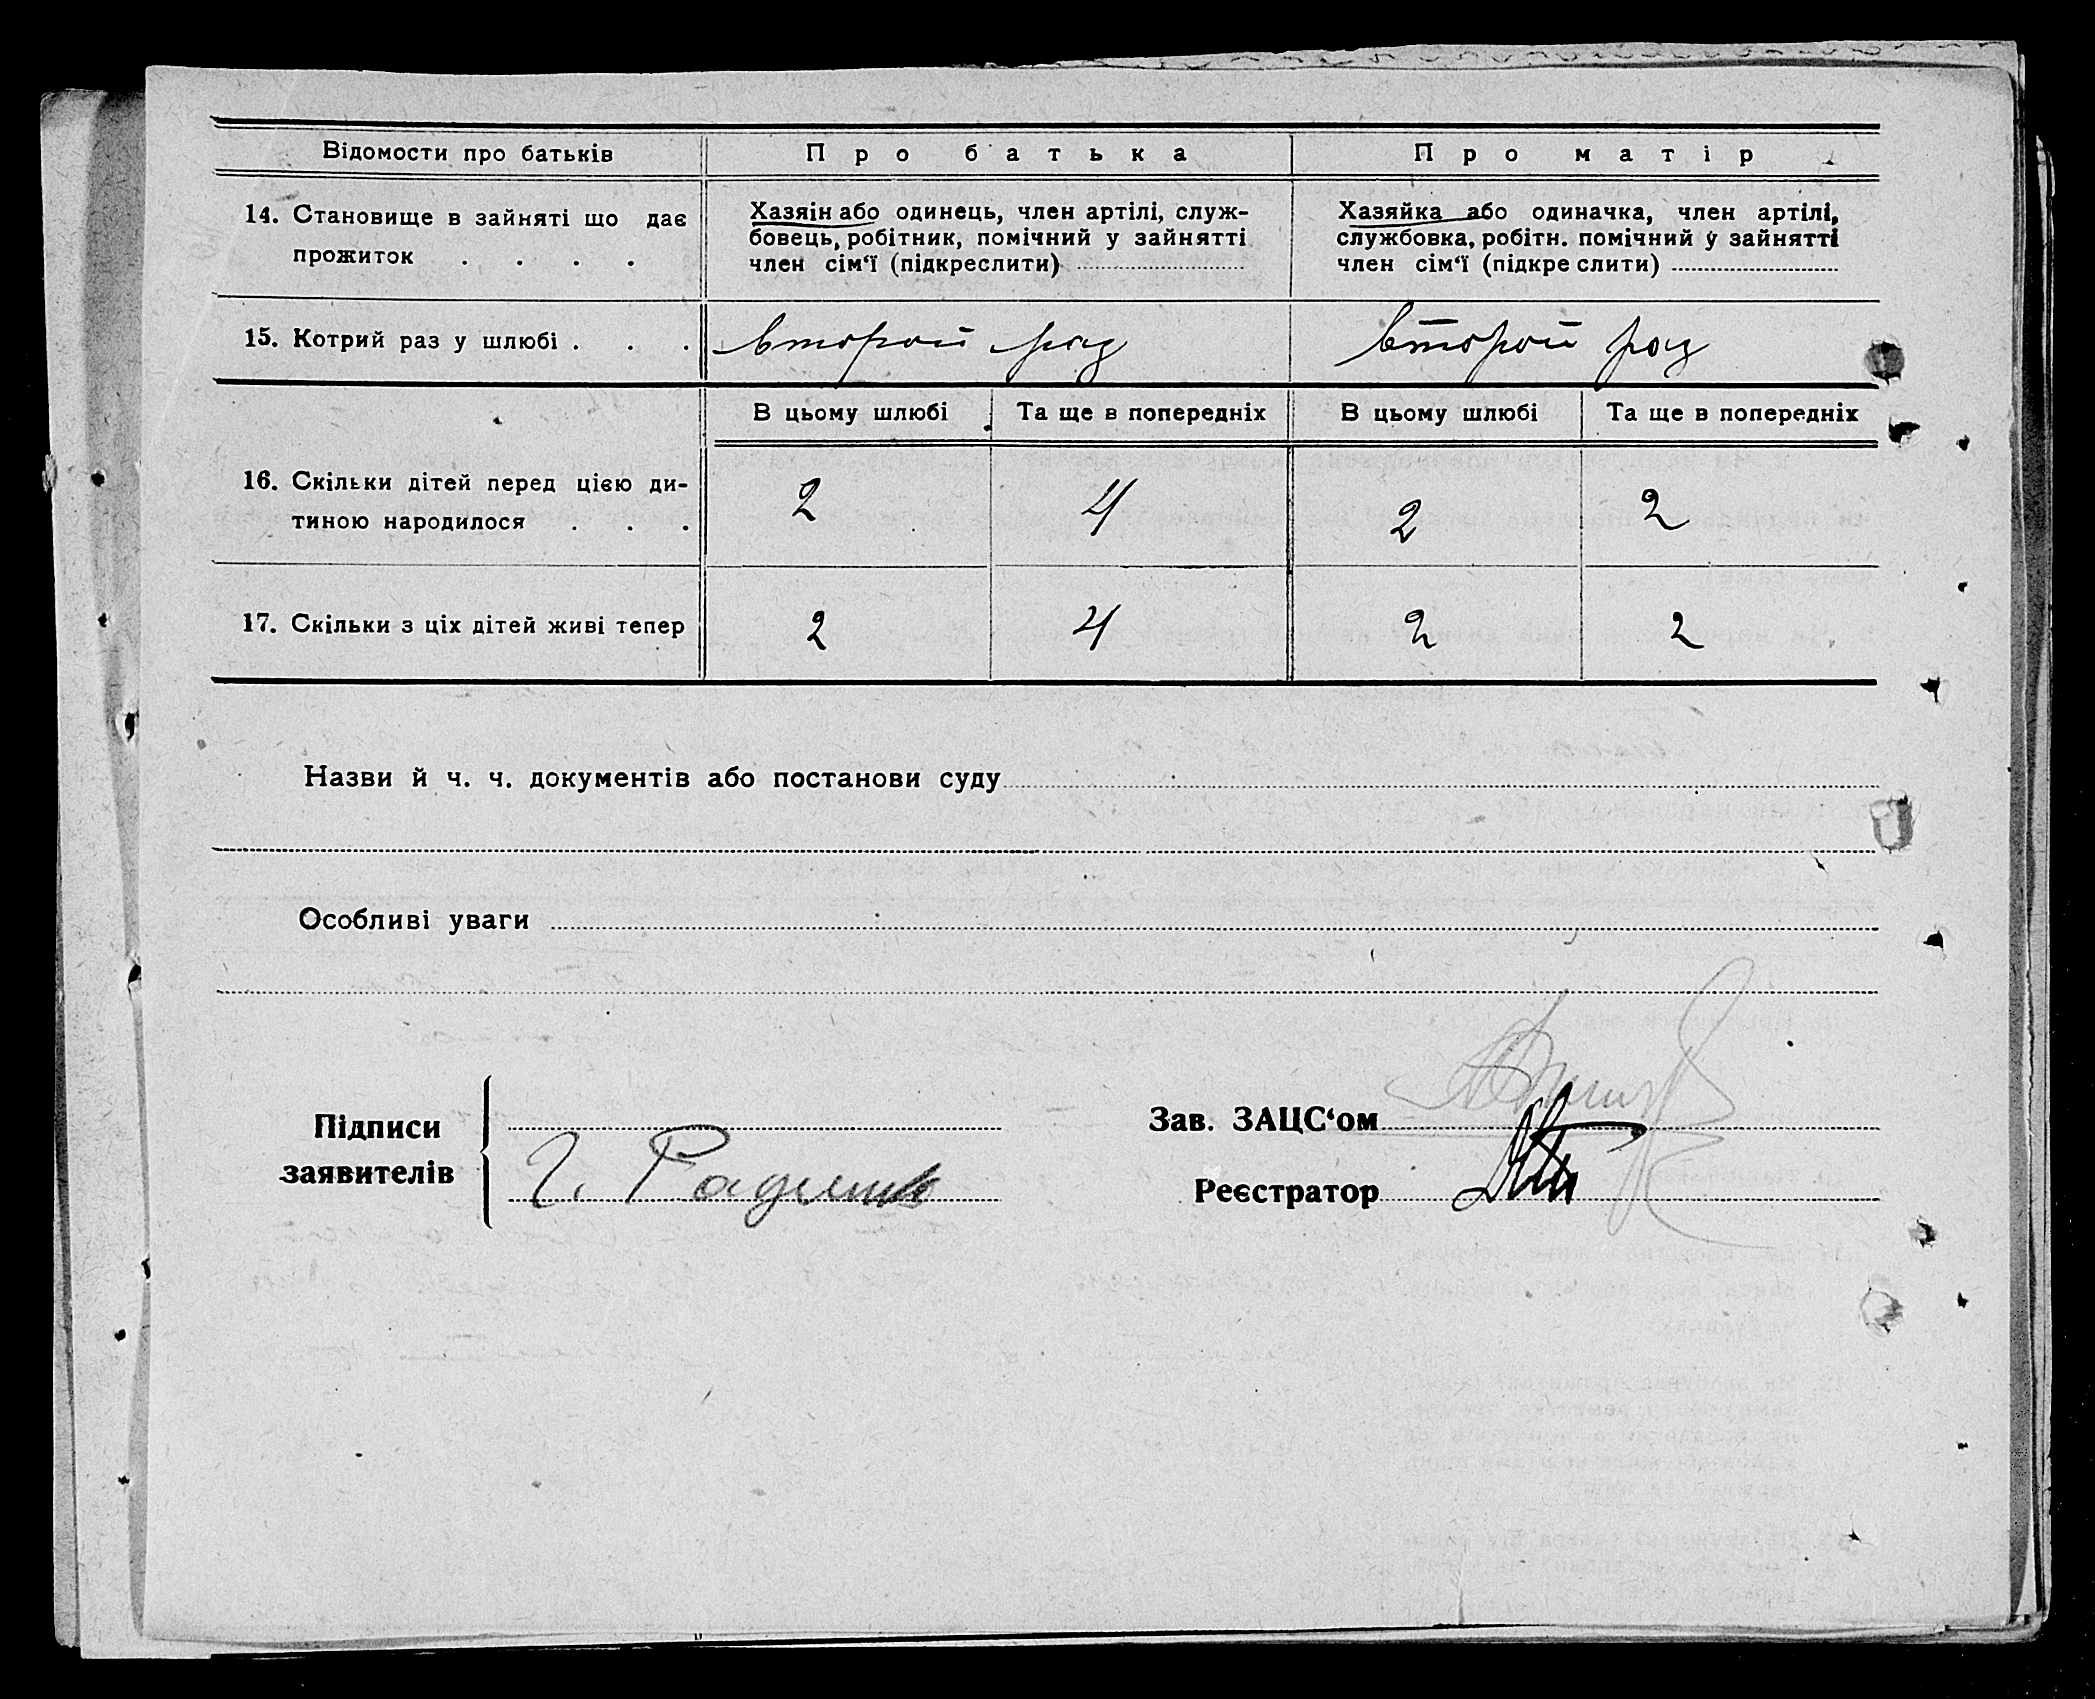 Відомости про батьків
Про батька
Про матір
14. Становище в зайняті що дає
прожиток . . . .
Хазяін або одинець, член артілі, служ-
бовець, робітник, помічний у зайнятті
член сім‘ї (підкреслити)
Хазяйка або одиначка, член артілі,
службовка, робітн. помічний у зайнятті
член сім‘ї (підкре слити)
15. Котрий раз у шлюбі . . .
второй раз
второй раз
В цьому шлюбі
Та ще в попередніх
В цьому шлюбі
Та ще в попередніх
16. Скільки дітей перед цією ди-
тиною народилося . . .
2
4
2
2
17. Скільки з ціх дітей живі тепер
2
4
2
2
Назви й ч. ч. документів або постанови суду
Особливі уваги
Підписи
заявителів
Зав. ЗАЦС‘ом
Реєстратор